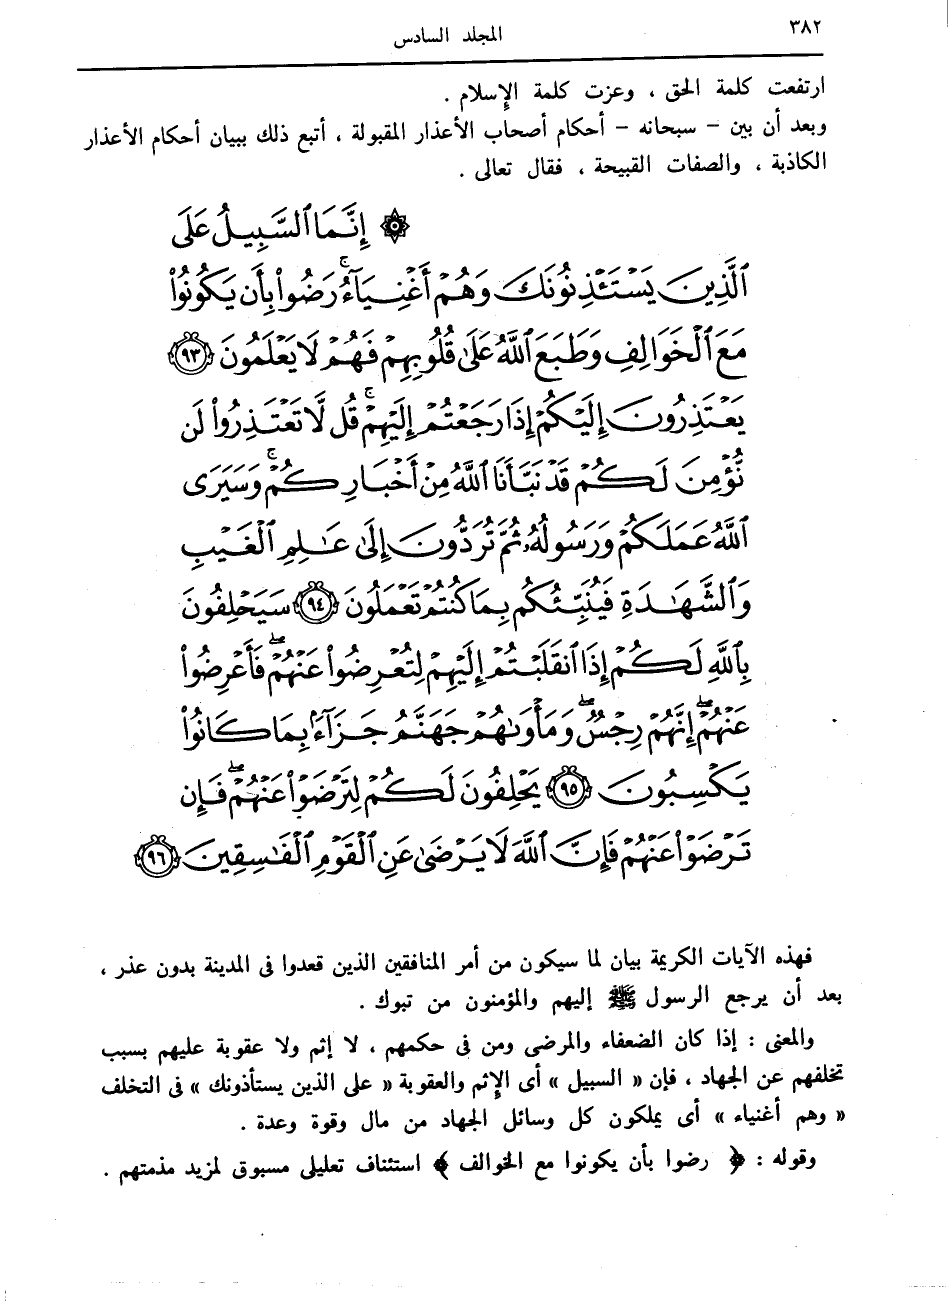 ٣٨٢
المجلد السادس
ارتفعت كلمة الحق ، وعزت كلمة الإسلام .
وبعد أن بين – سبحانه – أحكام أصحاب الأعذار المقبولة ، أتبع ذلك ببيان أحكام الأعذار
الكاذبة ، والصفات القبيحة ، فقال تعالى .
۞ إِنَّمَا ٱلسَّبِيلُ عَلَى
ٱلَّذِينَ يَسْتَـْٔذِنُونَكَ وَهُمْ أَغْنِيَآءُ ۚ رَضُوا۟ بِأَن يَكُونُوا۟
مَعَ ٱلْخَوَالِفِ وَطَبَعَ ٱللَّهُ عَلَىٰ قُلُوبِهِمْ فَهُمْ لَا يَعْلَمُونَ ٩٣
يَعْتَذِرُونَ إِلَيْكُمْ إِذَا رَجَعْتُمْ إِلَيْهِمْ ۚ قُل لَّا تَعْتَذِرُوا۟ لَن
نُّؤْمِنَ لَكُمْ قَدْ نَبَّأَنَا ٱللَّهُ مِنْ أَخْبَارِكُمْ ۚ وَسَيَرَى
ٱللَّهُ عَمَلَكُمْ وَرَسُولُهُۥ ثُمَّ تُرَدُّونَ إِلَىٰ عَـٰلِمِ ٱلْغَيْبِ
وَٱلشَّهَـٰدَةِ فَيُنَبِّئُكُم بِمَا كُنتُمْ تَعْمَلُونَ ٩٤ سَيَحْلِفُونَ
بِٱللَّهِ لَكُمْ إِذَا ٱنقَلَبْتُمْ إِلَيْهِمْ لِتُعْرِضُوا۟ عَنْهُمْ ۖ فَأَعْرِضُوا۟
عَنْهُمْ ۖ إِنَّهُمْ رِجْسٌ ۖ وَمَأْوَىٰهُمْ جَهَنَّمُ جَزَآءًۢ بِمَا كَانُوا۟
يَكْسِبُونَ ٩٥ يَحْلِفُونَ لَكُمْ لِتَرْضَوْا۟ عَنْهُمْ ۖ فَإِن
تَرْضَوْا۟ عَنْهُمْ فَإِنَّ ٱللَّهَ لَا يَرْضَىٰ عَنِ ٱلْقَوْمِ ٱلْفَـٰسِقِينَ ٩٦
فهذه الآيات الكريمة بيان لما سيكون من أمر المنافقين الذين قعدوا فى المدينة بدون عذر ،
بعد أن يرجع الرسول ﷺ إليهم والمؤمنون من تبوك .
والمعنى : إذا كان الضعفاء والمرضى ومن فى حكمهم ، لا إثم ولا عقوبة عليهم بسبب
تخلفهم عن الجهاد ، فإن « السبيل » أى الإثم والعقوبة « على الذين يستأذونك » فى التخلف
« وهم أغنياء » أى يملكون كل وسائل الجهاد من مال وقوة وعدة .
وقوله : ﴿ رضوا بأن يكونوا مع الخوالف ﴾ استئناف تعليلى مسبوق لمزيد مذمتهم .